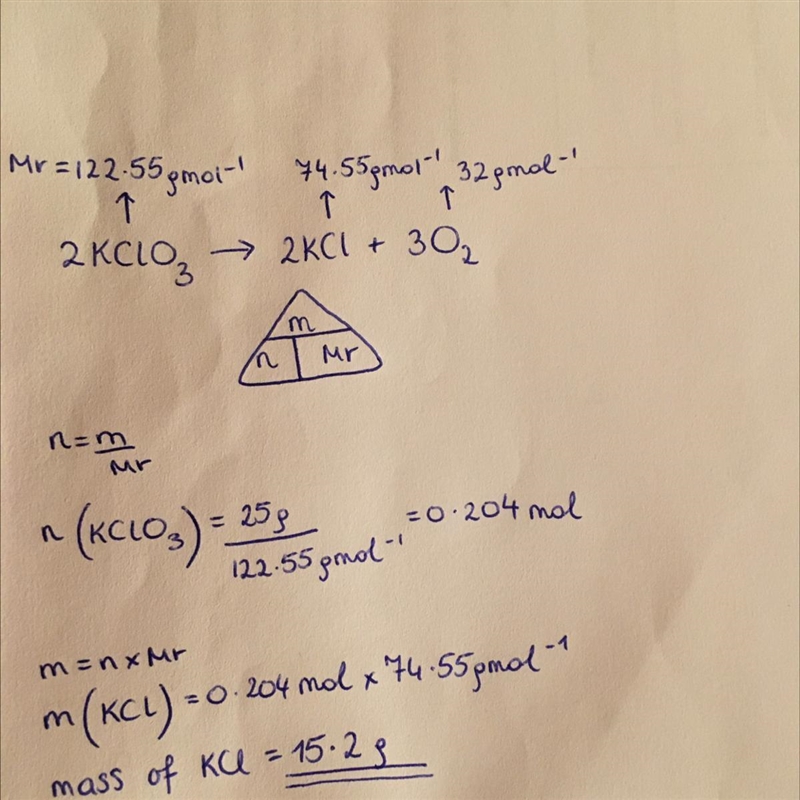 Mr = 122.55gmol⁻¹ 74.55gmol⁻¹ 32gmol⁻¹
↑ ↑ ↑
2KClO₃ → 2KCl + 3O₂
m
n Mr
n = m/Mr
n (KClO₃) = 25g/122.55gmol⁻¹ = 0.204 mol
m = n × Mr
m (KCl) = 0.204 mol × 74.55gmol⁻¹
mass of KCl = 15.2 g